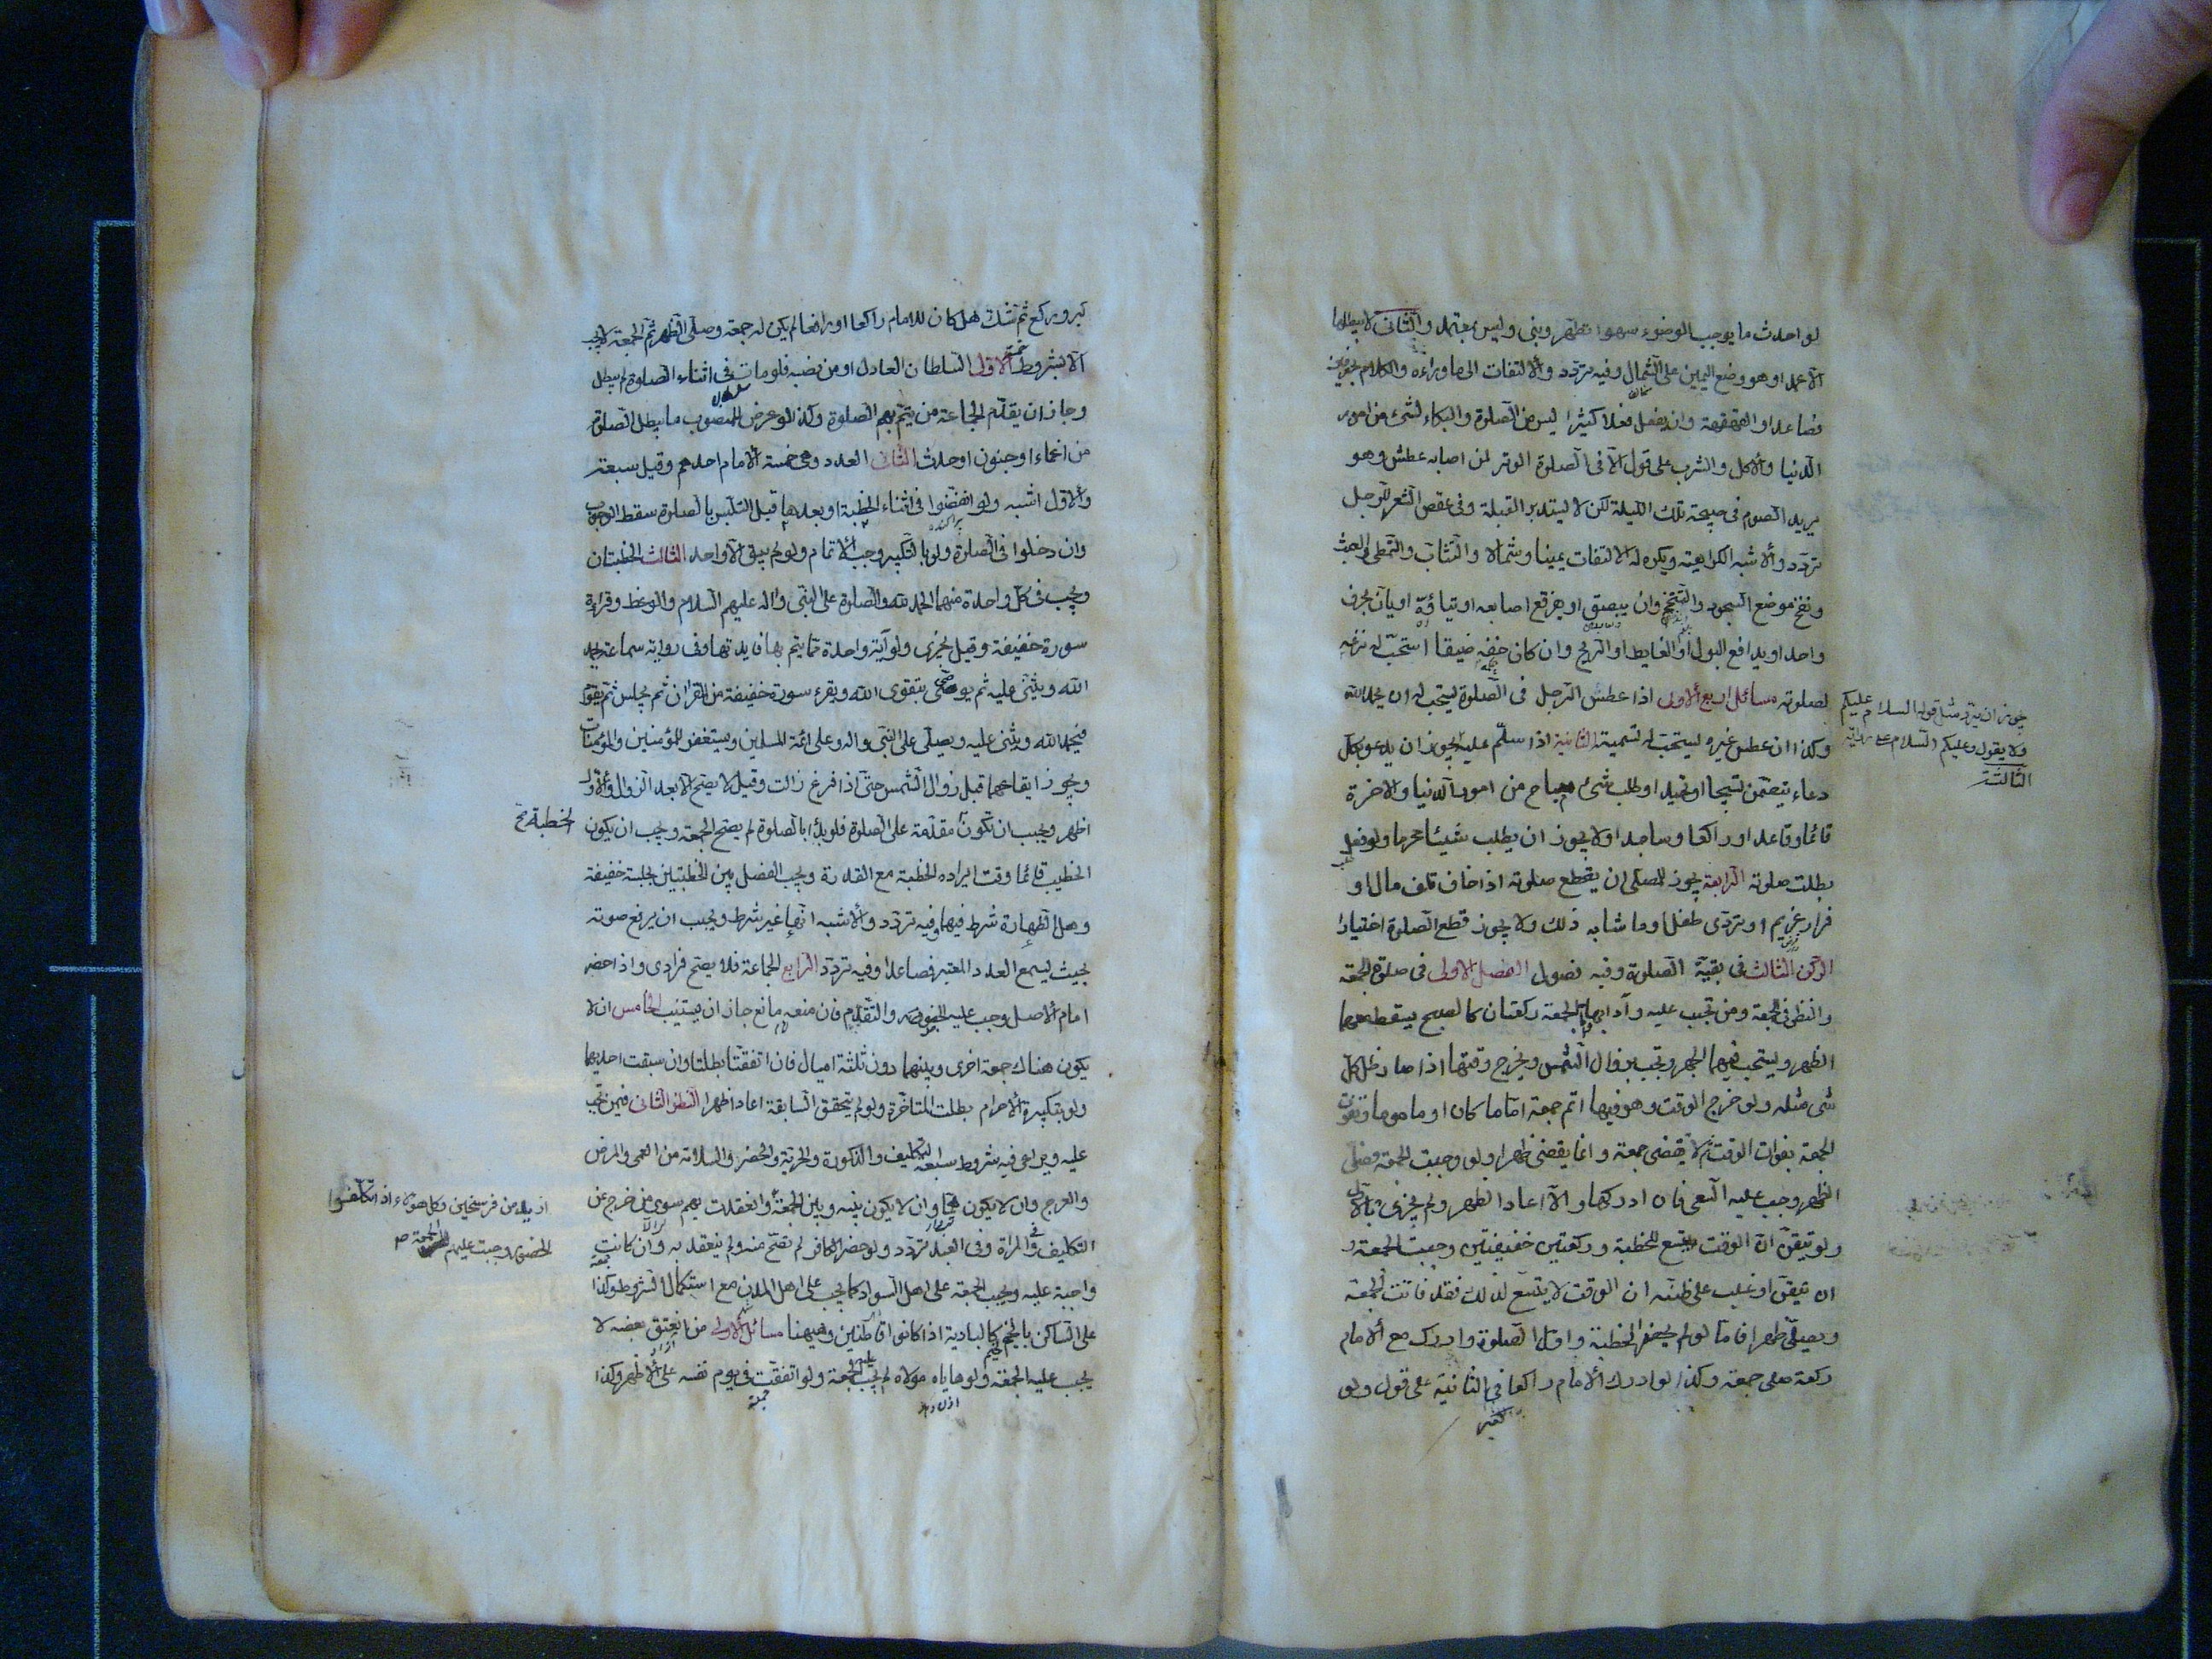 لو احدث ما يوجب الوضوء سهوا تطهر وبنى وليس بمعتمد والثانى لا يبطلها
الا عمدا وهو وضع اليمين على الشمال وفيه تردد والالتفات الى ما وراءه والكلام بحرفين
فصاعدا والقهقهة وان يفعل فعلا كثيرا ليس من الصلوة والبكاء لشئ من امور
الدنيا والاكل والشرب على قول الا فى الصلوة الوتر لمن اصابه عطش وهو
يريد الصوم فى صبيحة تلك الليلة لكن لا يستدبر القبلة وفى عقص الشعر للرجل
تردد والاشبه الكراهية ويكره له الالتفات يمينا وشمالا والتثاب والتمطى والعبث
ونفخ موضع السجود والتنخم وان يبصق او يفرقع اصابعه او يتاؤه او يان بحرف
واحد او يدافع البول او الغايط او الريح وان كان خفه ضيقا استحب له نزعه
لصلوته مسائل اربع الاولى اذا عطس الرجل فى الصلوة يستحب له ان يحمد الله
وكذا ان عطس غيره يستحب له تسميته الثانية اذا سلم عليه يجوز ان يدعو بكل
يجوز ان يرد مثل قوله السلام عليكم
ولا يقول وعليكم السلام على رواية
الثالثة
دعاء يتضمن تسبيحا او تحميدا او طلب شئ مباح من امور الدنيا والاخرة
قائما وقاعدا وراكعا وساجدا ولا يجوز ان يطلب شيئا محرما ولو فعل
بطلت صلوته الرابعة يجوز للمصلى ان يقطع صلوته اذا خاف تلف مال او
فرار غريم او تردى طفل او ما شابه ذلك ولا يجوز قطع الصلوة اختيارا
الركن الثالث فى بقية الصلوة وفيه فصول الفصل الاولى فى صلوة الجمعة
والنظر فى الجمعة ومن تجب عليه وآدابها الجمعة ركعتان كالصبح يسقط معهما
الظهر ويستحب فيهما الجهر وتجب بزوال الشمس ويخرج وقتها اذا صار ظل كل
شى مثله ولو خرج الوقت وهو فيها اتم جمعة اماما كان او ماموما وتفوت
الجمعة بفوات الوقت ثم لا يقضى جمعة وانما يقضى ظهرا ولو وجبت الجمعة فصلى
الظهر وجب عليه السعى فان ادركها والا اعاد الظهر ولم يجزى بالاول
ولو تيقن ان الوقت يتسع للخطبة وركعتين خفيفتين وجبت الجمعة و
ان تيقن او غلب على ظنه ان الوقت لا يتسع لذلك فقد فاتت الجمعة
ويصلى ظهرا فاما لو لم يحضر الخطبة واول الصلوة وادرك مع الامام
ركعة صلى جمعة وكذا لو ادرك الامام راكعا فى الثانية على قول ولو
كبر
كبر وركع ثم شك هل كان للامام راكعا او رافعا لم يكن له جمعة وصلى الظهر ثم الجمعة لا تجب
الا بشروط خمسة الاول السلطان العادل او من نصبه فلو مات فى اثناء الصلوة لم يبطل
وجاز ان يقدم الجماعة من يتم بهم الصلوة وكذا لو عرض للمنصوب ما يبطل الصلوة
من اغماء او جنون او حدث الثانى العدد وهى خمسة الامام احدهم وقيل سبعة
والاول اشبه ولو انفضوا فى اثناء الخطبة او بعدها قبل التلبس بالصلوة سقط الوجوب
وان دخلوا فى الصلوة ولو بالتكبير وجب الاتمام ولو لم يبق الا واحد الثالث الخطبتان
ويجب فى كل واحدة منهما الحمد لله والصلوة على النبى واله عليهم السلام والوعظ وقراءة
سورة خفيفة وقيل يجزى ولو آية واحدة مما يتم بها فايدتها وفى رواية سماعة يحمد
الله ويثنى عليه ثم يوصى بتقوى الله ويقرء سورة خفيفة من القران ثم يجلس ثم يقوم
فيحمد الله ويثنى عليه ويصلى على النبى واله وعلى ائمة المسلمين ويستغفر للمؤمنين والمؤمنات
ويجوز ايقاعهما قبل زوال الشمس حتى اذا فرغ زالت وقيل لا يصح الا بعد الزوال والاول
اظهر ويجب ان تكون مقدمة على الصلوة فلو بدا بالصلوة لم يصح الجمعة ويجب ان يكون
الخطبة خ
الخطيب قائما وقت ايراده الخطبة مع القدرة ويجب الفصل بين الخطبتين بجلسة خفيفة
وهل الطهارة شرط فيهما وفيه تردد والاشبه انها غير شرط ويجب ان يرفع صوته
بحيث يسمع العدد المعتبر فصاعدا وفيه تردد الرابع الجماعة فلا يصح فرادى واذا حضر
امام الاصل وجب عليه الحضور والتقدم فان منعه مانع جاز ان يستنيب الخامس ان لا
يكون هناك جمعة اخرى وبينهما دون ثلثة اميال فان اتفقتا بطلتا وان سبقت احديهما
ولو بتكبيرة الاحرام بطلت المتاخرة ولو لم يتحقق السابقة اعادا ظهرا النظر الثانى فيمن تجب
عليه ويراعى فيه شروط سبعة التكليف والذكورة والحرية والحضر والسلامة من العمى والمرض
والعرج وان لا يكون هما وان لا يكون بينه وبين الجمعة وانعقدت بهم سوى من خرج عن
ازيد من فرسخين وكل هؤلاء اذا تكلفوا
الحضور وجبت عليهم الجمعة صح
التكليف والمراة وفى العبد تردد ولو حضر الكافر لم تصح منه ولم ينعقد به وان كانت
واجبة عليه ويجب الجمعة على اهل السواد كما يجب على اهل المدن مع استكمال الشروط وكذا
على الساكن بالخيم كالبادية اذا كانوا قاطنين وهيهنا مسائل الاولى من انعتق بعضه لا
يجب عليه الجمعة ولو هاياه مولاه لم تجب الجمعة ولو اتفقت فى يوم نفسه على الاظهر وكذا